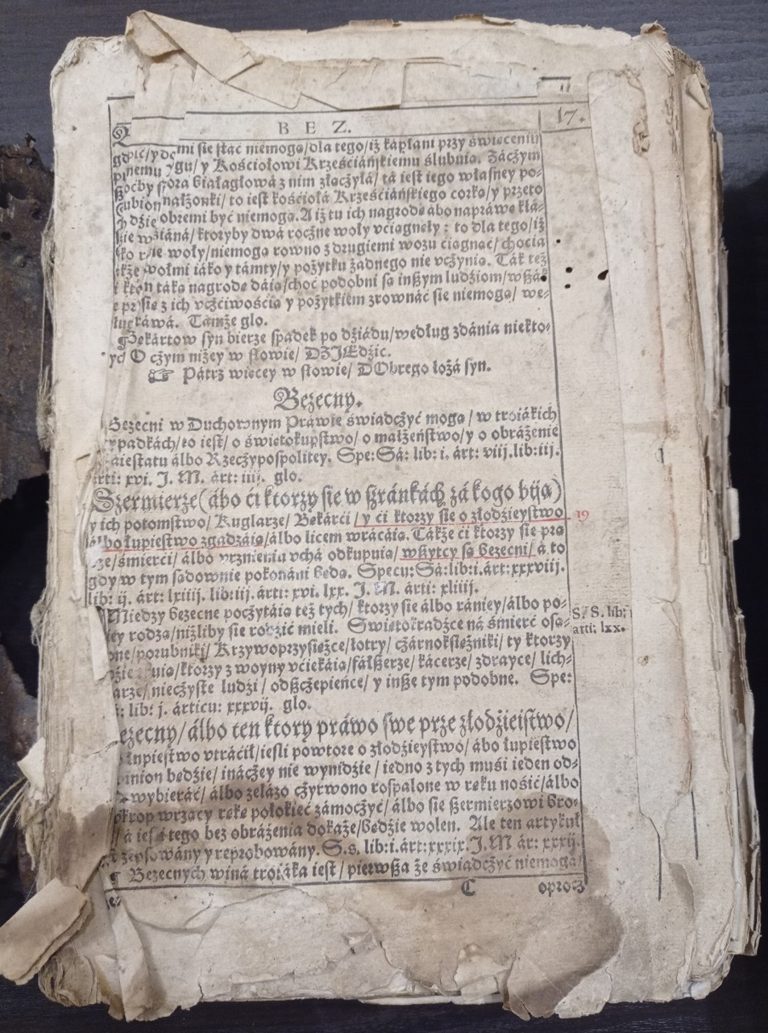 B E Z. 17.
mi sie stać niemogą/dla tego/iż kápłani przy święceniu
y Kościołowi Krześciáńskiemu ślubuią. Záczym
białagłowá z nim złączyłá/ tá iest iego własney po-
to iest kościołá Krześciáńskiego corką/ y przeto
dobremi być niemogą. A iż tu ich nagrodę ábo napráwę kłá-
ktoryby dwá roczne woły vciągnęły: to dla tego/iż
woły/niemogą rowno z drugiemi wozu ciągnąć/ chociá
wołmi iáko y támty/y pożytku żadnego nie vczynią. Ták też
táką nagrodę dáią/choć podobni są inßym ludziom/wßák
z ich vczćiwośćią y pożytkiem zrownáć się niemogą/ we-
Támże glo.
Bękártow syn bierze spadek po dźiádu/według zdánia niekto-
O czym niżey w słowie/ DZIEdźic.
☞ Pátrz więcey w słowie/ DObrego łożá syn.
Bezecny.
Bezecni w Duchownym Práwie świadczyć mogą/ w troiákich
przypadkách/to iest/ o świętokupstwo/ o małżeństwo/y o obráżenie
Máiestatu álbo Rzeczypospolitey. Spe: Sá: lib: i. árt: viij. lib: iij.
árti: xvi. J. M. árt: iiij. glo.
Szermierze (ábo ći ktorzy się w ßránkách zá kogo biją)
y ich potomstwo/ Kuglarze/ Bękárći/ y ći ktorzy się o złodzieystwo 19
álbo łupiestwo zgadzáią/álbo licem wracáią. Tákże ći ktorzy się prá
śmierći/ álbo vrznienia vchá odkupuią/ wßytcy są bezecni/ á to
gdy w tym sądownie pokonáni będą. Specu: Sá: lib: i. árt: xxxviij.
lib: ij. árt: lxiiij. lib: iij. árti: xvi. lxx. J. M. árti: xliiij.
Między bezecne poczytáią też tych/ ktorzy się álbo rániey/álbo po-
rodzą/niżliby się rodzić mieli. Świętokradźce ná śmierć osą- S. S. lib:
porubniki/ Krzywoprzysiężce/łotry/ czárnoksiężniki/ ty ktorzy árti: lxx.
ktorzy z woyny vćiekáią/fálßerze/ kácerze/ zdrayce/ lich-
nieczyste ludzi/ odßczepieńce/ y inße tym podobne. Spe:
lib: j. árticu: xxxvij. glo.
Bezecny/ álbo ten ktory práwo swe prze złodzieistwo/
łupiestwo vtráćił/iesli powtore o złodzieystwo/ ábo łupiestwo
będzie/ ináczey nie wynidzie/ iedno z tych muśi ieden od-
wybieráć/ álbo żelázo czyrwono rospalone w ręku nośić/álbo
wrzący rękę połokieć zámoczyć/ álbo się ßermierzowi bro-
á iesli tego bez obráżenia dokaże/będzie wolen. Ale ten artykuł
zepsowány y reprobowány. S. s. lib: i. árt: xxxix. J. M. ár: xxxij.
Bezecnych winá troiáka iest/ pierwßa że świadczyć niemogą/
C oprocz